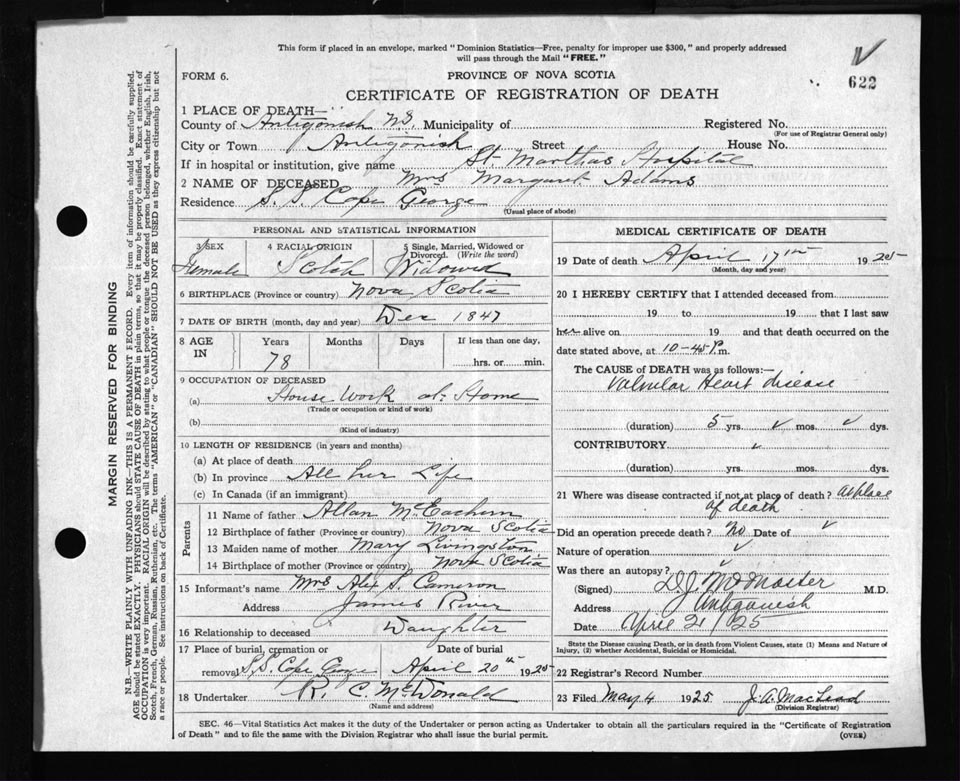 This form if placed in an envelope, marked "Dominion Statistics—Free, penalty for improper use $300," and properly addressed
will pass through the Mail "FREE."
FORM 6.
PROVINCE OF NOVA SCOTIA
622
CERTIFICATE OF REGISTRATION OF DEATH
1 PLACE OF DEATH—
County of Antigonish N.S. Municipality of Registered No.
(For use of Registrar General only)
City or Town Antigonish Street House No.
If in hospital or institution, give name St. Marthas Hospital
2 NAME OF DECEASED Mrs Margaret Adams
Residence S. S. Cape George
(Usual place of abode)
PERSONAL AND STATISTICAL INFORMATION
3 SEX 4 RACIAL ORIGIN 5 Single, Married, Widowed or
Divorced. (Write the word)
Female Scotch Widowed
6 BIRTHPLACE (Province or country) Nova Scotia
7 DATE OF BIRTH (month, day and year) Dec 1847
8 AGE IN Years Months Days If less than one day,
78 hrs. or min.
9 OCCUPATION OF DECEASED
(a) House Work at Home
(Trade or occupation or kind of work)
(b)
(Kind of industry)
10 LENGTH OF RESIDENCE (in years and months)
(a) At place of death
(b) In province All her Life
(c) In Canada (if an immigrant)
Parents
11 Name of father Allan McEachern
12 Birthplace of father (Province or country) Nova Scotia
13 Maiden name of mother Mary Livingston
14 Birthplace of mother (Province or country) Nova Scotia
15 Informant's name Mrs Alex S. Cameron
Address James River
16 Relationship to deceased Daughter
17 Place of burial, cremation or Date of burial
removal S.S. Cape George April 20th 1925
18 Undertaker R. C. McDonald
(Name and address)
MEDICAL CERTIFICATE OF DEATH
19 Date of death April 17th 1925
(Month, day and year)
20 I HEREBY CERTIFY that I attended deceased from
19 to 19 that I last saw
h alive on 19 and that death occurred on the
date stated above, at 10-45 P.m.
The CAUSE of DEATH was as follows:—
Valvular Heart disease
(duration) 5 yrs. mos. dys.
CONTRIBUTORY
(duration) yrs. mos. dys.
21 Where was disease contracted if not at place of death? at place
of death
Did an operation precede death? No Date of
Nature of operation
Was there an autopsy?
(Signed) M.D.
Address Antigonish
Date April 21/25
State the Disease causing Death, or in death from Violent Causes, state (1) Means and Nature of
Injury, (2) whether Accidental, Suicidal or Homicidal.
22 Registrar's Record Number
23 Filed May 4 1925 J. A. MacLeod
(Division Registrar)
SEC. 46—Vital Statistics Act makes it the duty of the Undertaker or person acting as Undertaker to obtain all the particulars required in the "Certificate of Registration
of Death" and to file the same with the Division Registrar who shall issue the burial permit.
(OVER)
MARGIN RESERVED FOR BINDING
N.B.—WRITE PLAINLY WITH UNFADING INK—THIS IS A PERMANENT RECORD. Every item of information should be carefully supplied.
AGE should be stated EXACTLY. PHYSICIANS should STATE CAUSE OF DEATH in plain terms, so that it may be properly classified. Exact statement of
OCCUPATION is very important. RACIAL ORIGIN will be described by stating to what people or tongue the deceased person belonged, whether English, Irish,
Scotch, French, German, Russian, Ruthenian, etc. The terms "AMERICAN" or "CANADIAN" SHOULD NOT BE USED as they express citizenship but not
a race or people. See instructions on back of Certificate.